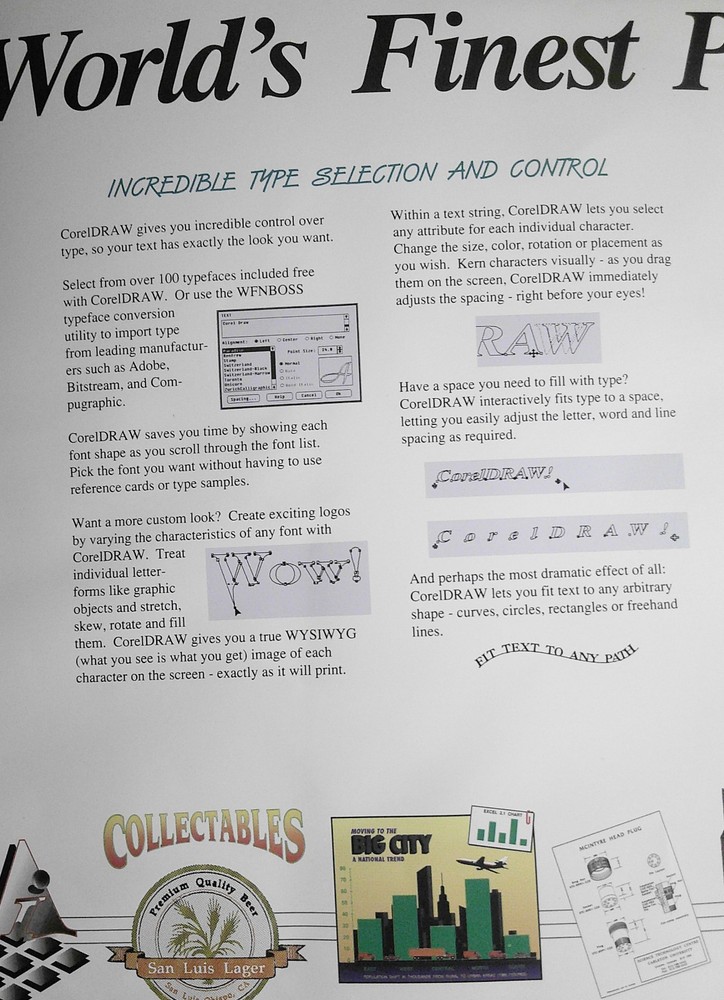 World's Finest P
INCREDIBLE TYPE SELECTION AND CONTROL
CorelDRAW gives you incredible control over
type, so your text has exactly the look you want.
Select from over 100 typefaces included free
with CorelDRAW. Or use the WFNBOSS
typeface conversion
utility to import type
from leading manufactur-
ers such as Adobe,
Bitstream, and Com-
pugraphic.
TEXT
Corel Draw
Alignment: Left Center Right None
Point Size: 24.0
Normal
Switzerland
Switzerland-Black
Switzerland-Narrow
Toronto
Unicorn
ZurichCalligraphic
Spacing... Help Cancel Ok
CorelDRAW saves you time by showing each
font shape as you scroll through the font list.
Pick the font you want without having to use
reference cards or type samples.
Want a more custom look? Create exciting logos
by varying the characteristics of any font with
CorelDRAW. Treat
individual letter-
forms like graphic
objects and stretch,
skew, rotate and fill
them. CorelDRAW gives you a true WYSIWYG
(what you see is what you get) image of each
character on the screen - exactly as it will print.
Wow!
Within a text string, CorelDRAW lets you select
any attribute for each individual character.
Change the size, color, rotation or placement as
you wish. Kern characters visually - as you drag
them on the screen, CorelDRAW immediately
adjusts the spacing - right before your eyes!
RAW
Have a space you need to fill with type?
CorelDRAW interactively fits type to a space,
letting you easily adjust the letter, word and line
spacing as required.
CorelDRAW!
CorelDRAW!
And perhaps the most dramatic effect of all:
CorelDRAW lets you fit text to any arbitrary
shape - curves, circles, rectangles or freehand
lines.
FIT TEXT TO ANY PATH
COLLECTABLES
Premium Quality Beer
San Luis Lager
San Luis Obispo, CA
MOVING TO THE
BIG CITY
A NATIONAL TREND
EXCEL 2.1 CHART
MCINTYRE HEAD PLUG